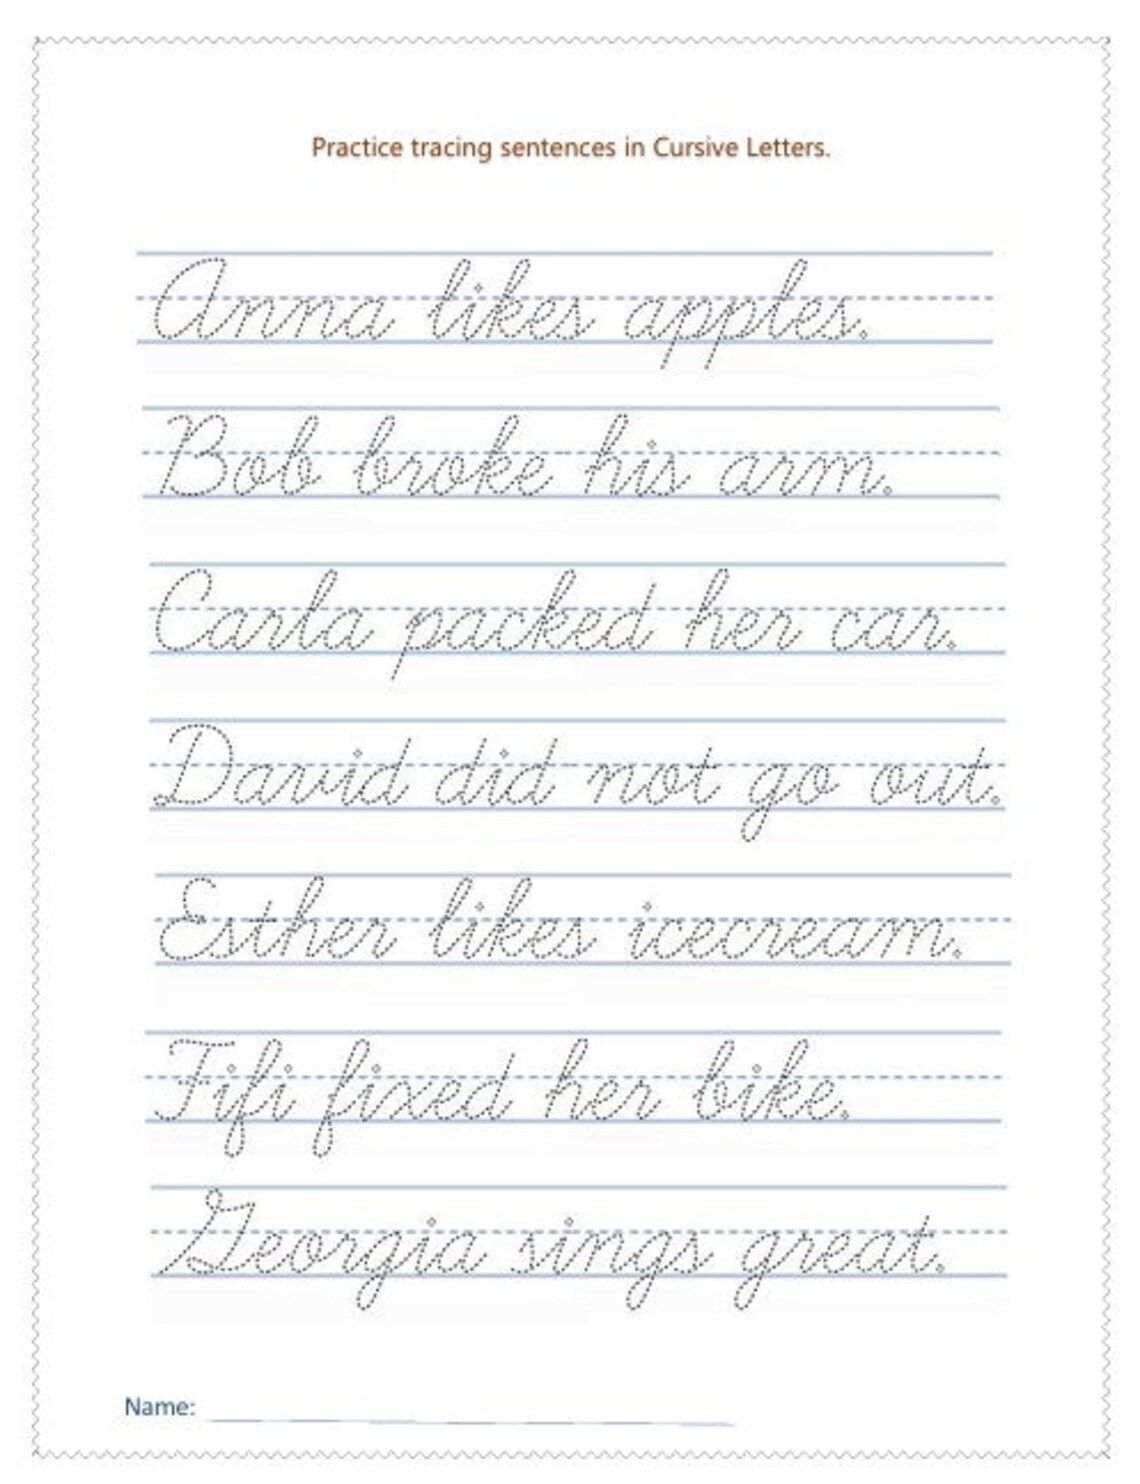 Practice tracing sentences in Cursive Letters.
Anna likes apples.
Bob broke his arm.
Carla packed her car.
David did not go out.
Esther likes icecream.
Fifi fixed her bike.
Georgia sings great.
Name: